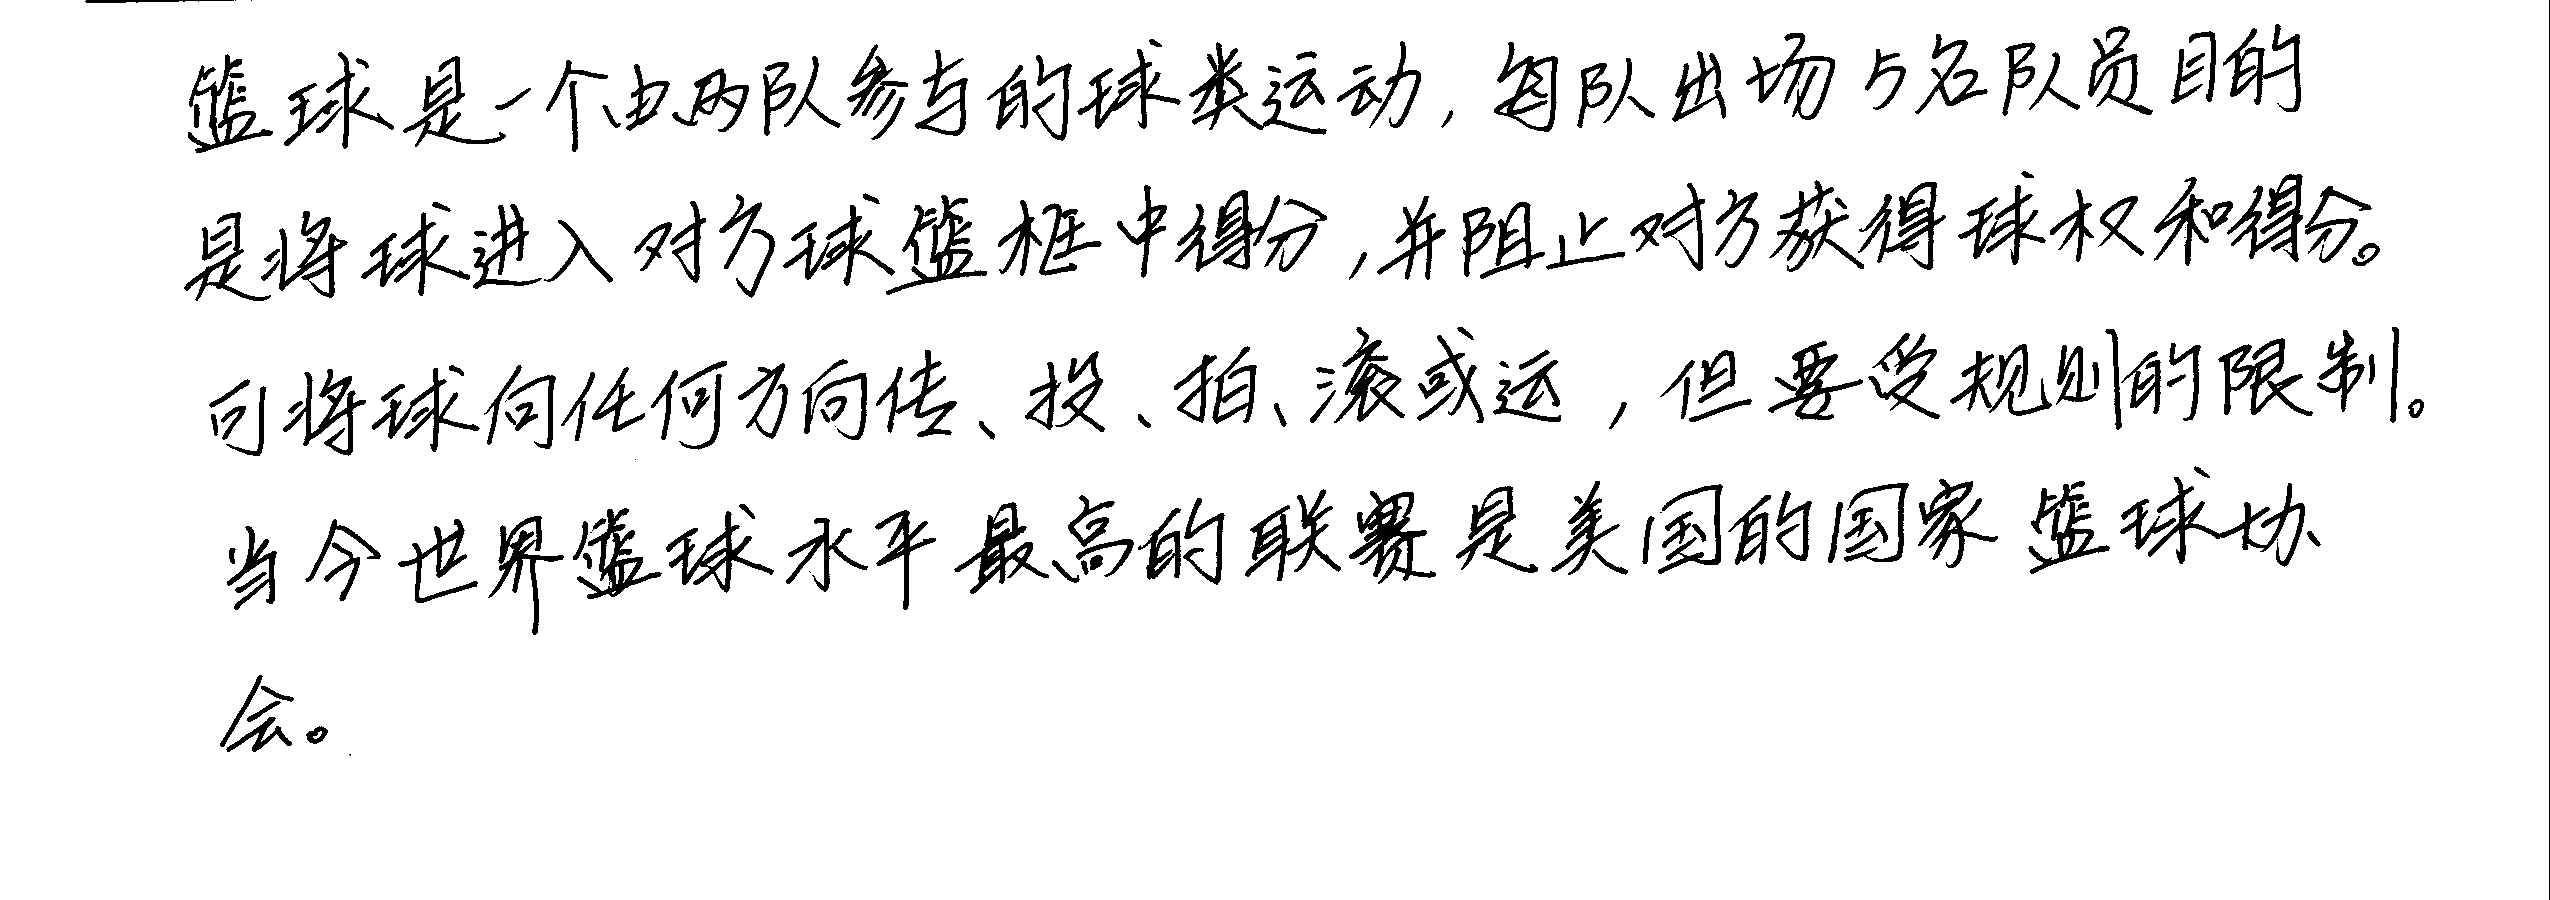 篮球是一个由两队参与的球类运动，每队出场5名队员目的
是将球进入对方球篮框中得分，并阻止对方获得球权和得分。
可将球向任何方向传、投、拍、滚或运，但要受规则的限制。
当今世界篮球水平最高的联赛是美国的国家篮球协
会。